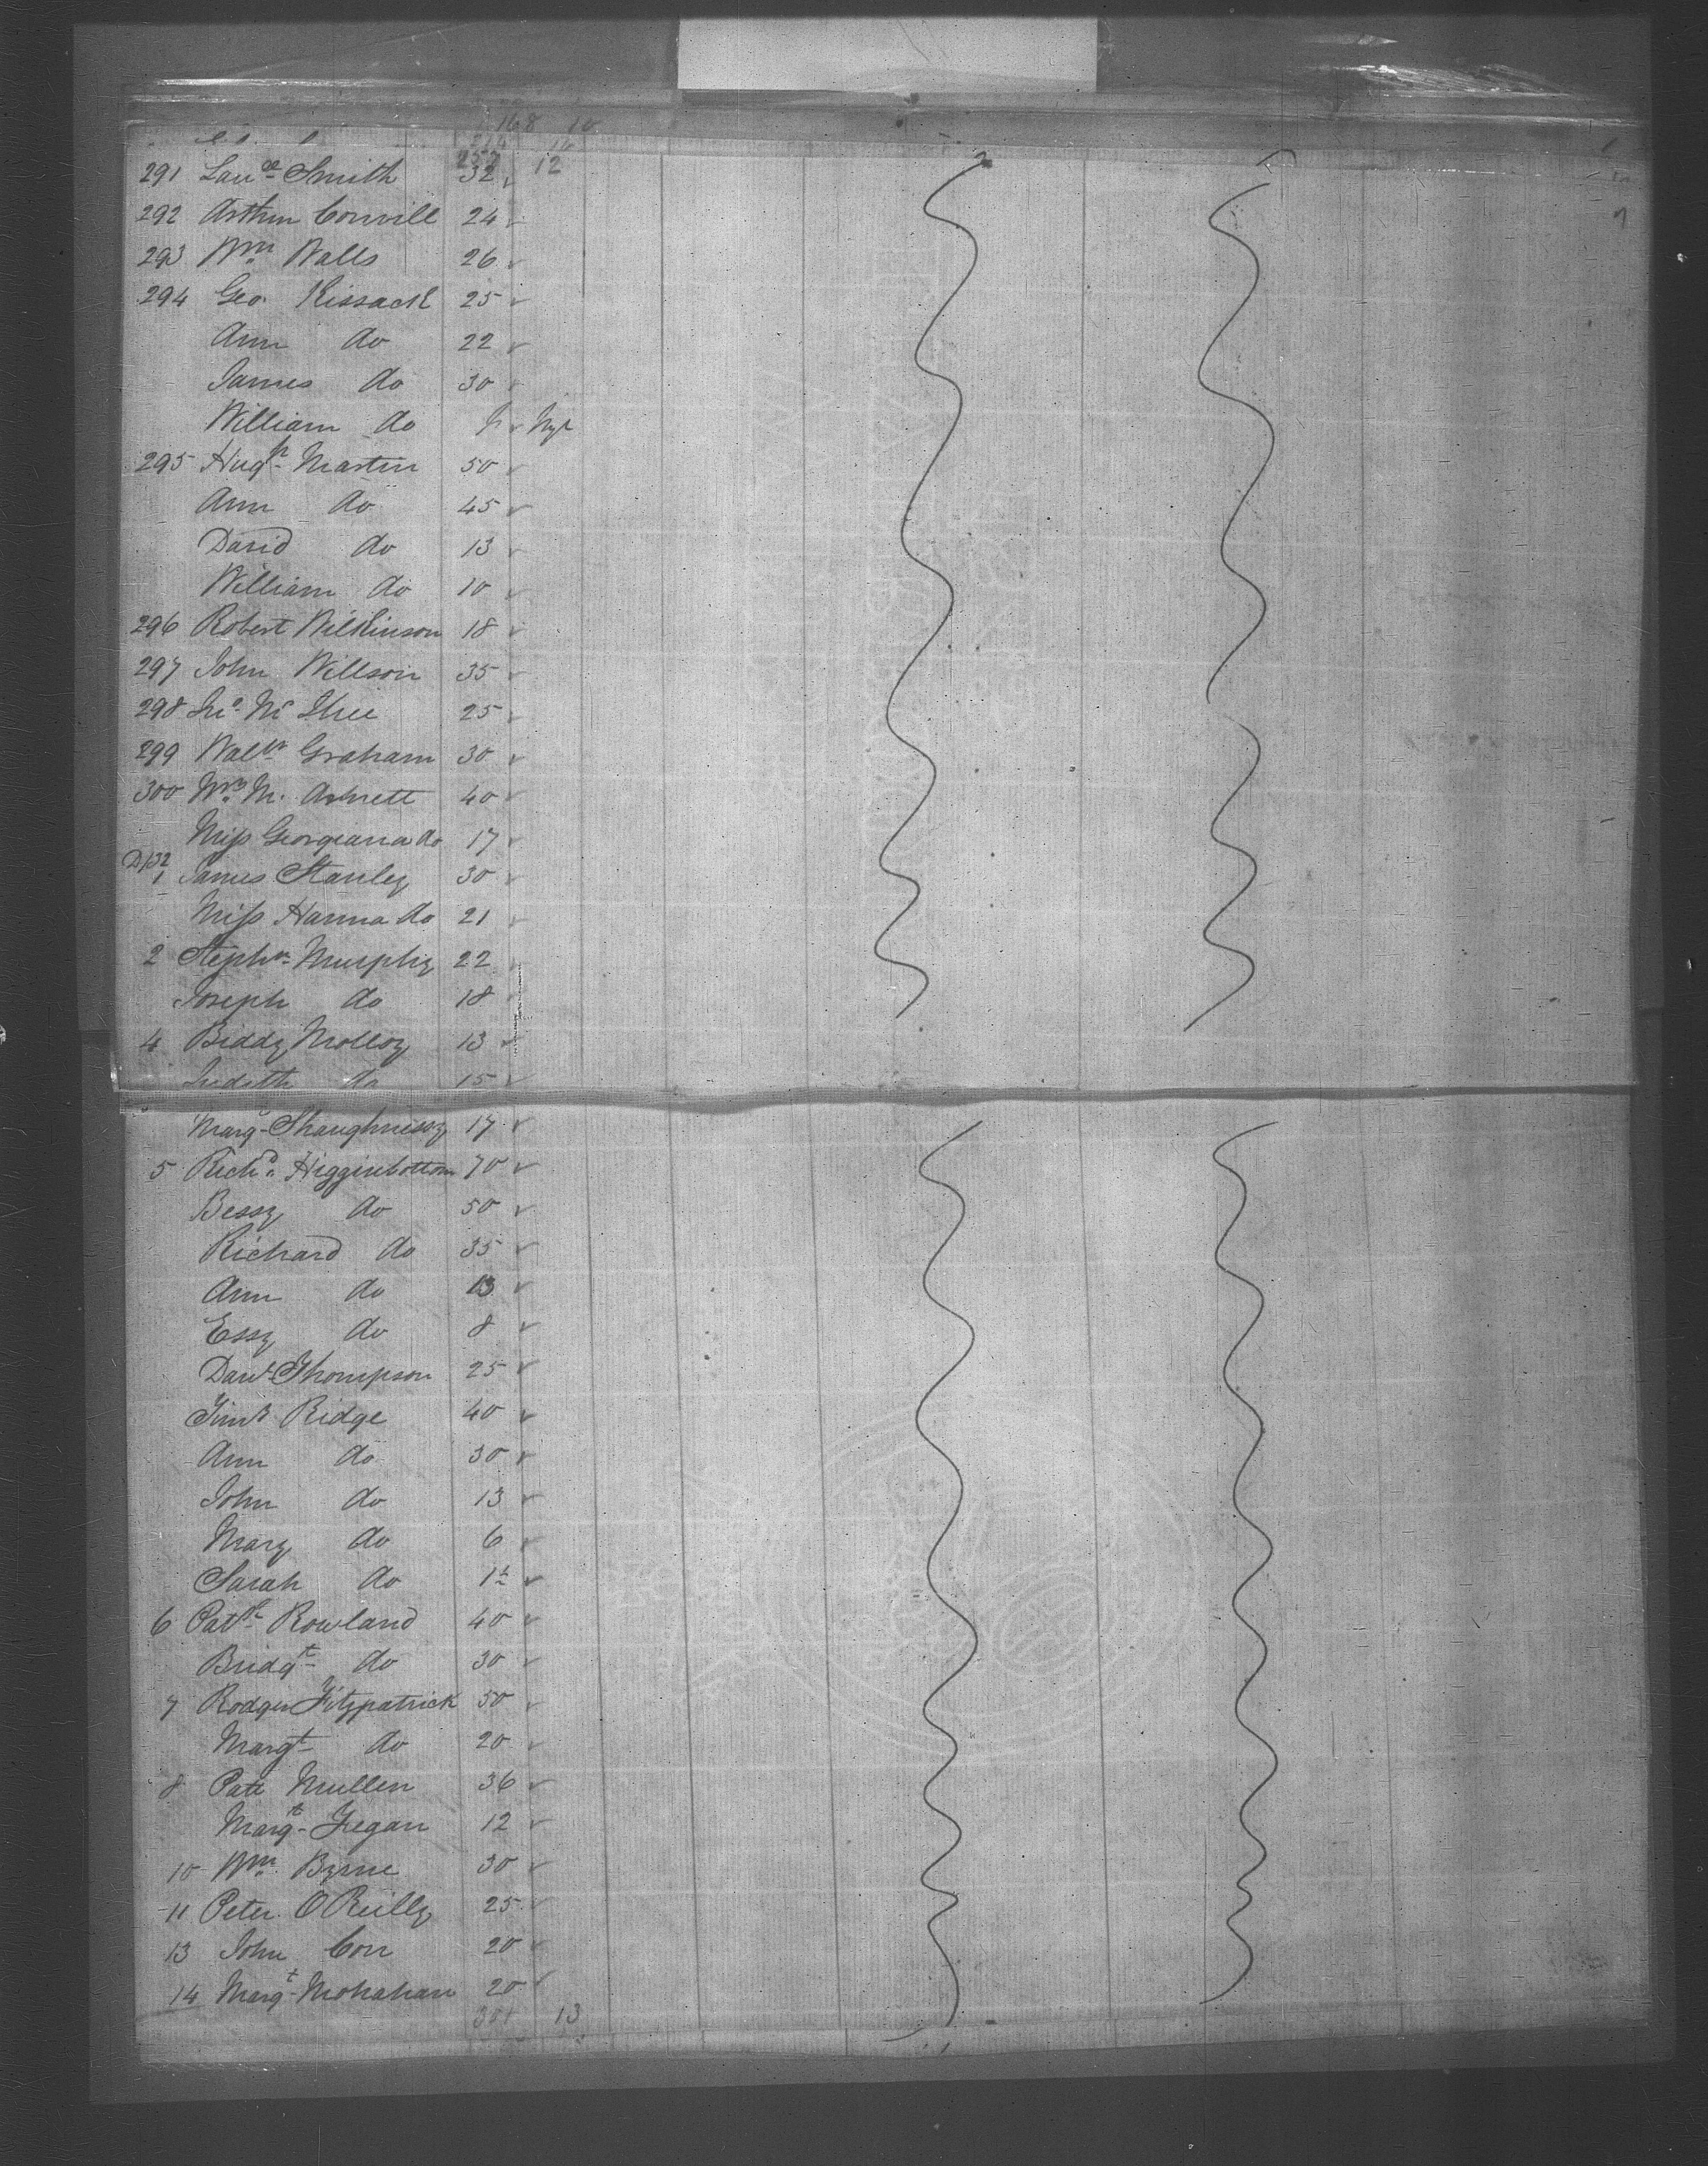 168 10
257 12
291 Lau^ce Smith 32
292 Arthur Convill 24
293 Wm Walls 26
294 Geo. Kissack 25
Ann do 22
James do 30
William do
295 Hug^h Martin 50
Ann do 45
David do 13
William do 10
296 Robert Wilkinson 18
297 John Willson 35
298 Jno Mc Shee 25
299 Walt^r Graham 30
300 Mrs M. Arnett 40
Miss Georgiana do 17
1 James Stanley 30
Miss Hanna do 21
2 Steph^n Murphy 22
Joseph do 18
4 Biddy Molloy 13
Judith do 15
Marg^t Shaughnissy 17
5 Rich^d Higginbottom 70
Bessy do 50
Richard do 35
Ann do 13
Essy do 8
Dan^l Thompson 25
Tim^y Ridge 40
Ann do 30
John do 13
Mary do 6
Sarah do
6 Pat^k Rowland 40
Bridg^t do 30
7 Rodger Fitzpatrick 50
Marg^t do 20
8 Patt Mullen 36
Marg^t Fegan 12
10 Wm Byrne 30
11 Peter O Reilly 25
13 John Corr 20
14 Marg^t Monahan 20
301 13